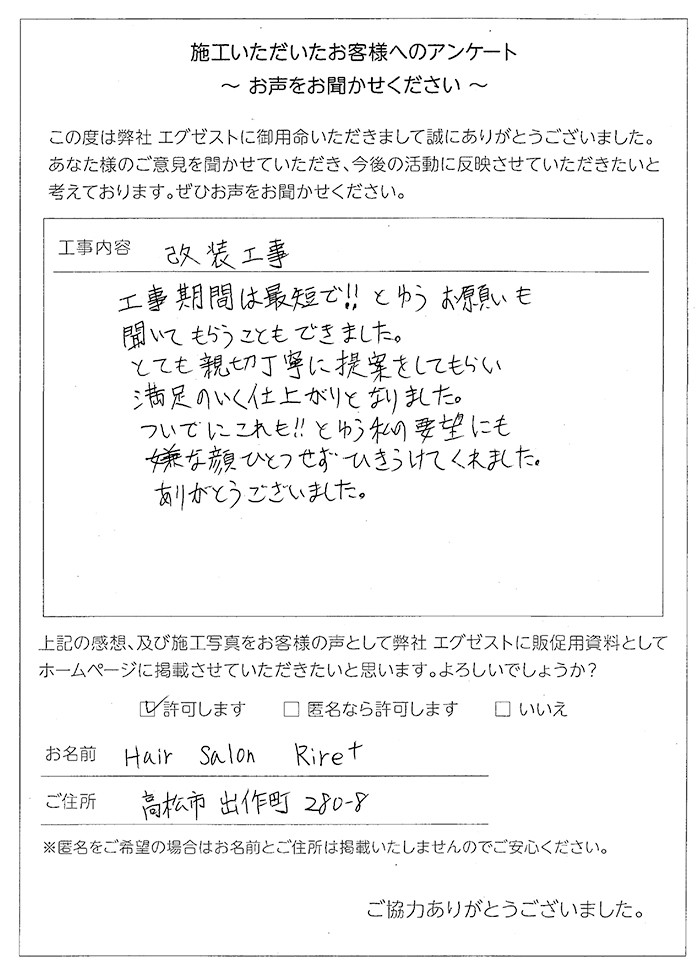 施工いただいたお客様へのアンケート
～ お声をお聞かせください ～
この度は弊社 エグゼストに御用命いただきまして誠にありがとうございました。
あなた様のご意見を聞かせていただき、今後の活動に反映させていただきたいと
考えております。ぜひお声をお聞かせください。
工事内容 改装工事
工事期間は最短で!! とゆう お願いも
聞いてもらうこともできました。
とても親切丁寧に提案をしてもらい
満足のいく仕上がりとなりました。
ついでにこれも!! とゆう私の要望にも
嫌な顔ひとつせずひきうけてくれました。
ありがとうございました。
上記の感想、及び施工写真をお客様の声として弊社 エグゼストに販促用資料として
ホームページに掲載させていただきたいと思います。よろしいでしょうか？
☑許可します □匿名なら許可します □いいえ
お名前 Hair Salon Rire+
ご住所 高松市 出作町 280-8
※匿名をご希望の場合はお名前とご住所は掲載いたしませんのでご安心ください。
ご協力ありがとうございました。